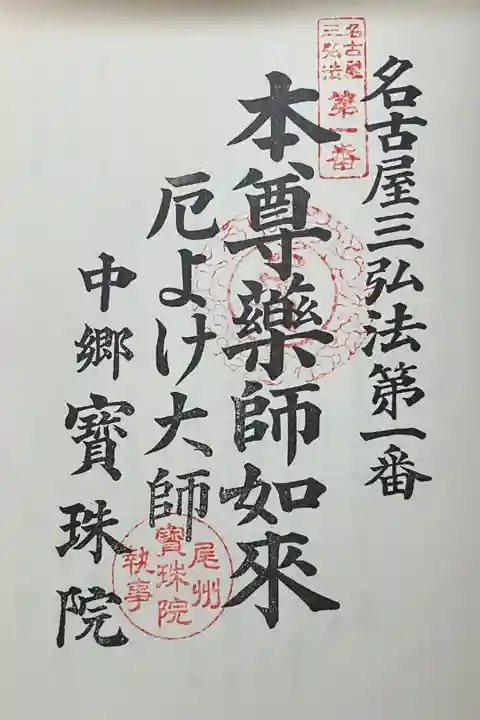 名古屋三弘法第一番
名古屋
三弘法
第一番
本尊藥師如來
厄よけ大師
中郷寶珠院
尾州
寶珠院
執事